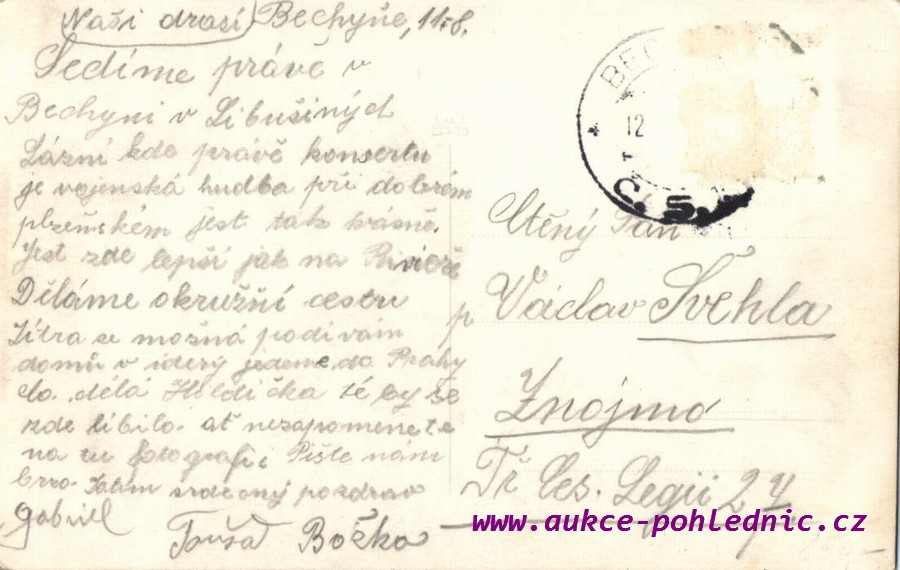 Naši drazí Bechyňe, 11.8.
Sedíme právě v
Bechyni v Libušiných
Lázní kde právě konsertu
je vojenská hudba při dobrém
plzeňském jest tak krásně.
Jest zde lepší jak na Rivieře
Děláme okružní cestu
Zítra se možná podívám
domů v úterý jedeme do Prahy
Co dělá Holdička té by se
zde líbilo. ať nezapomenete
na tu fotografii Pište nám
brzo. Zatím srdečný pozdrav
Gabriel
Božka
BEC
12
Č.S.
Ctěný Pan
p Václav Švehla
Znojmo
Tř Čes. Legií 24
www.aukce-pohlednic.cz